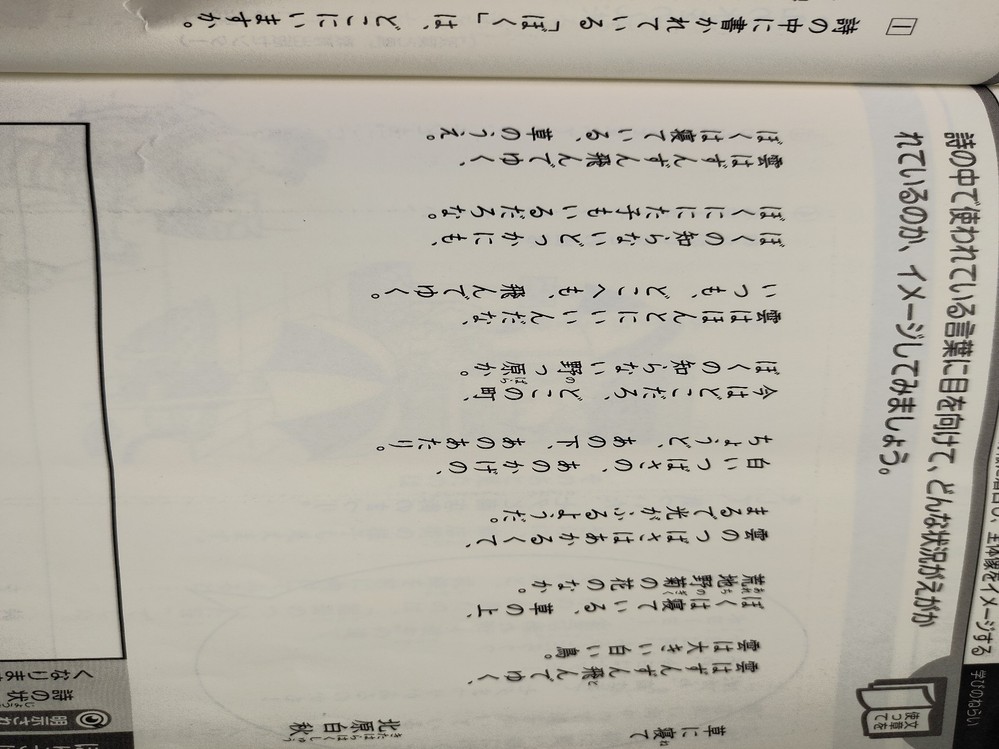 学びのねらい
全体像をイメージする
文章を使って
詩の中で使われている言葉に目を向けて、どんな状況がえがか
れているのか、イメージしてみましょう。
草に寝て
北原白秋
雲はずんずん飛んでゆく、
雲は大きい白い鳥。
ぼくは寝ている、草の上、
荒地野菊の花のなか。
雲のつばさはあかるくて、
まるで光がふるようだ。
白いつばさの、あのかげの、
ちょうど、あの下、あのあたり。
今はどこだろ、どこの町、
ぼくの知らない野っ原か。
雲はほんとにいいんだな、
いつも、どこへも、飛んでゆく。
ぼくの知らないどっかにも、
ぼくににた子もいるだろな。
雲はずんずん飛んでゆく、
ぼくは寝ている、草のうえ。
詩の状
くなりま
1 詩の中に書かれている「ぼく」は、どこにいますか。